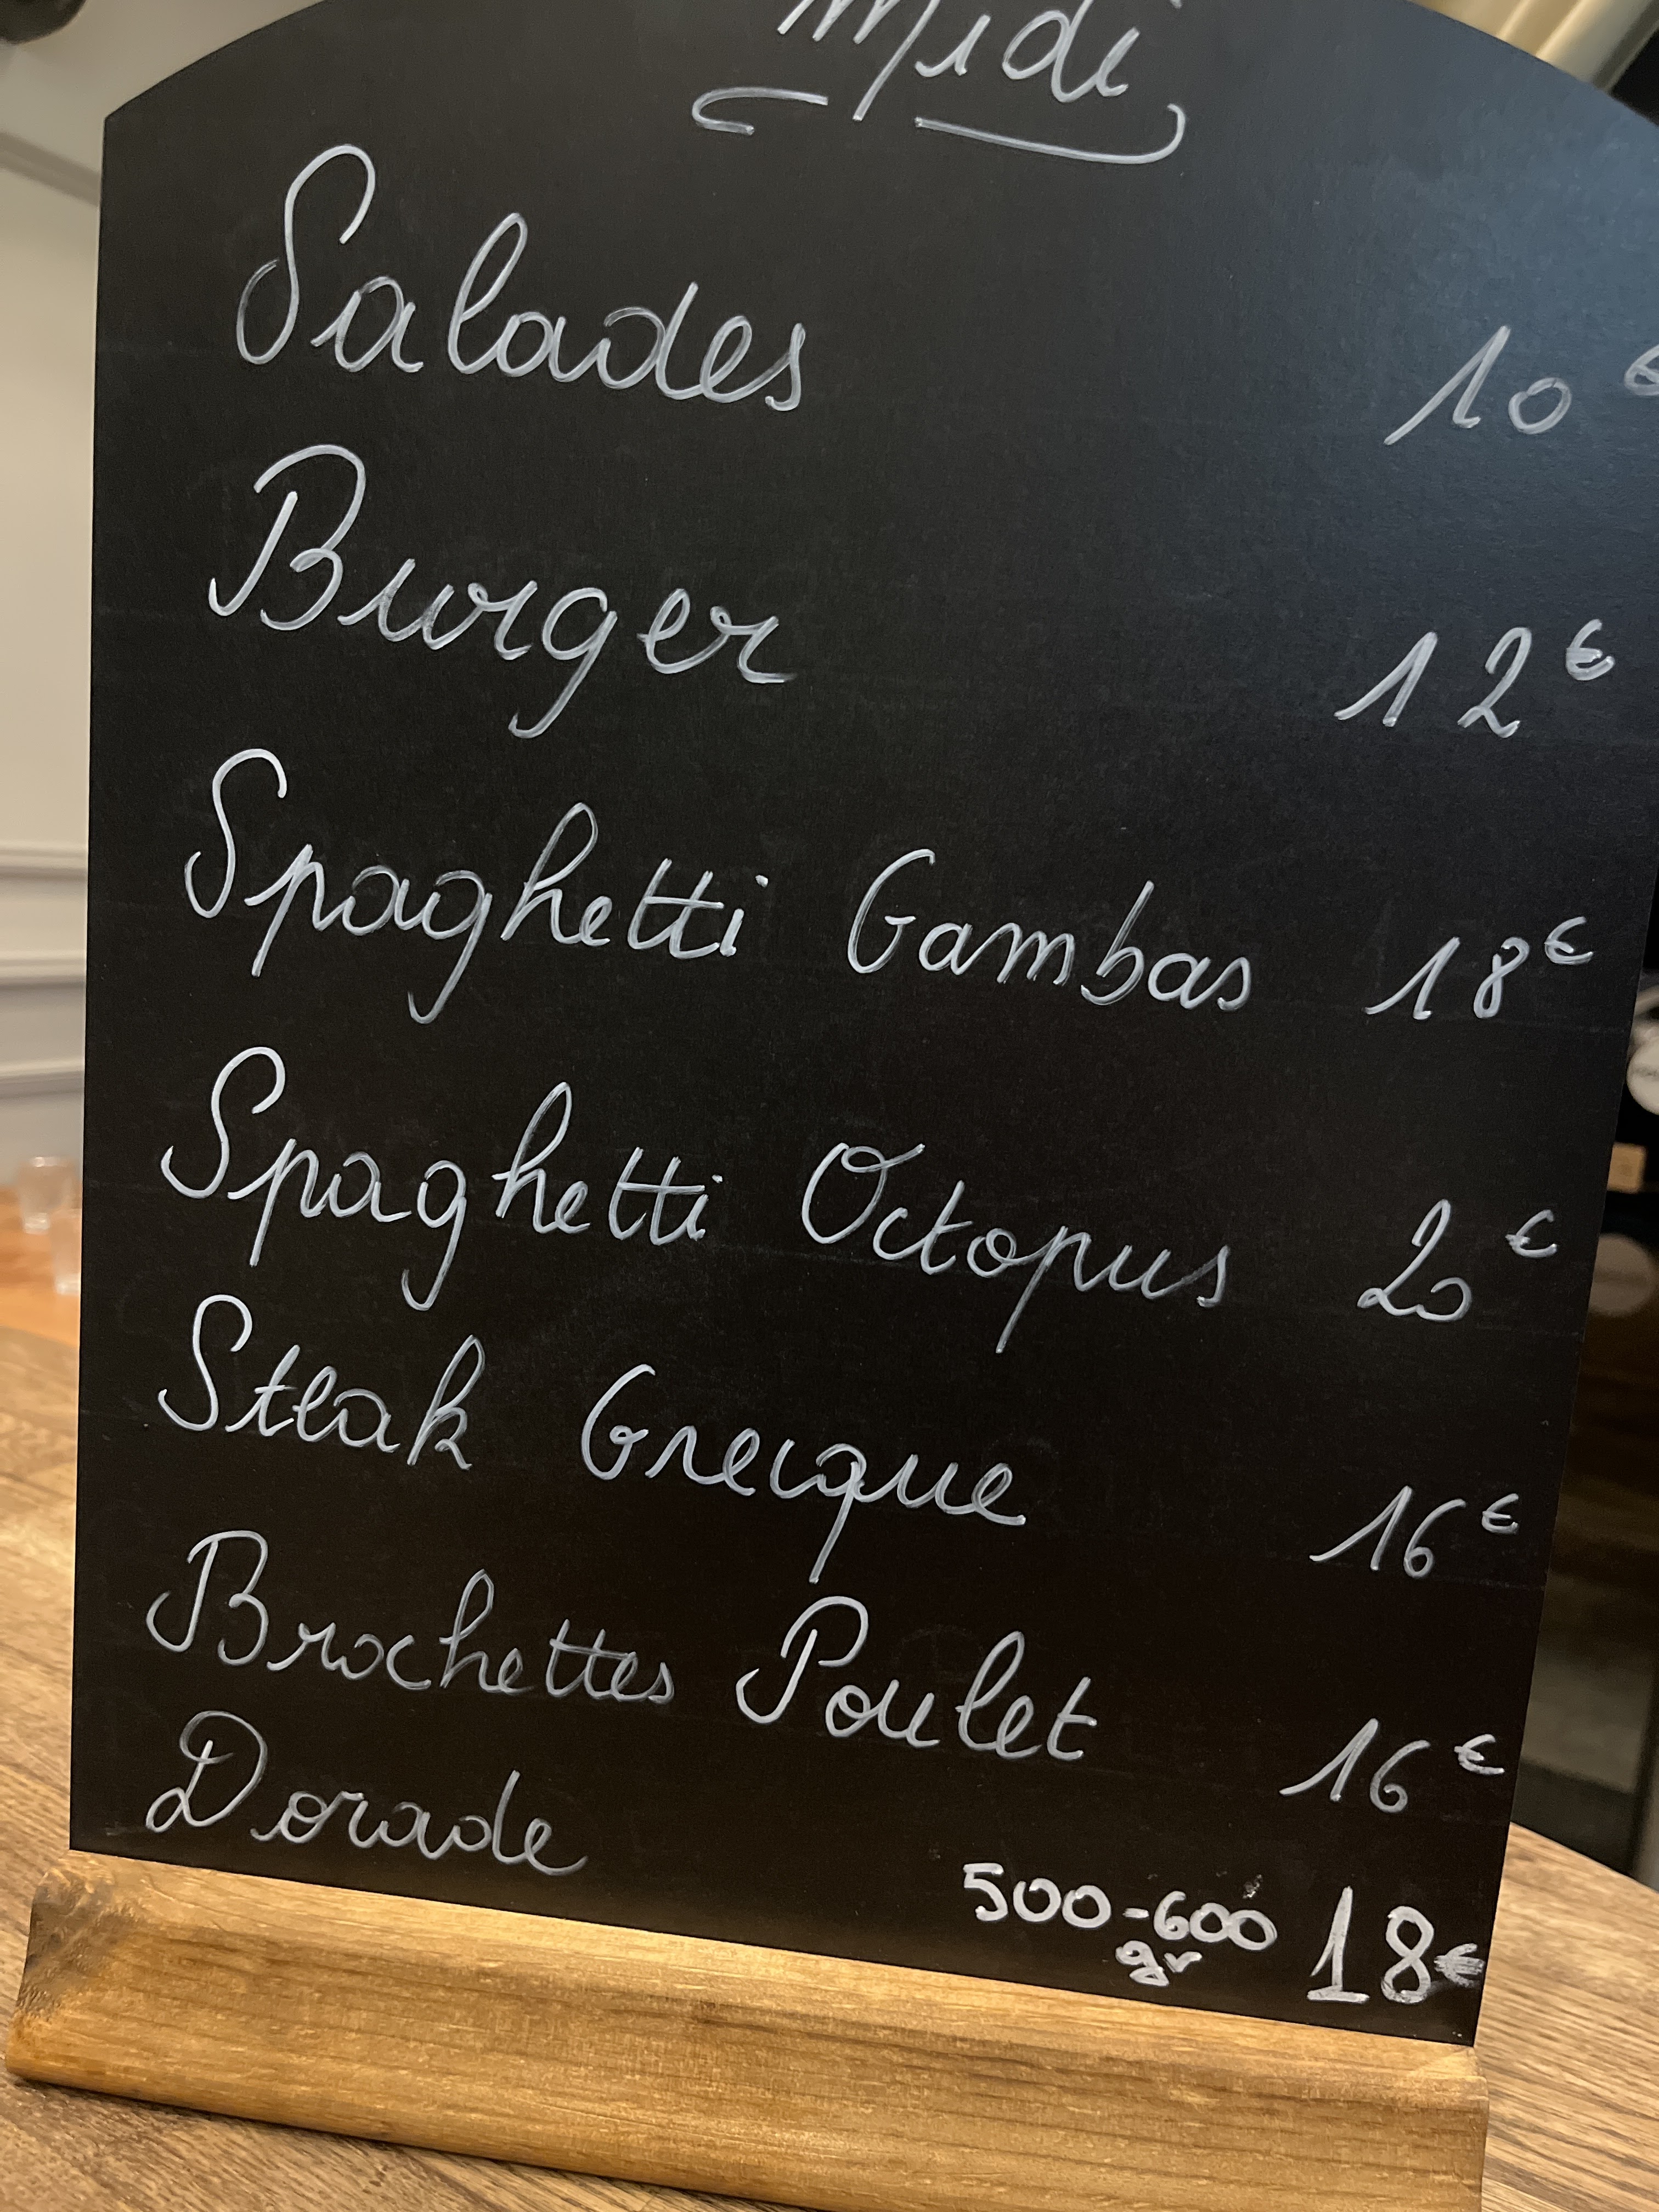 Midi
Salades 10 €
Burger 12 €
Spaghetti Gambas 18 €
Spaghetti Octopus 20 €
Steak Grecque 16 €
Brochettes Poulet 16 €
Dorade 500-600 gr 18 €